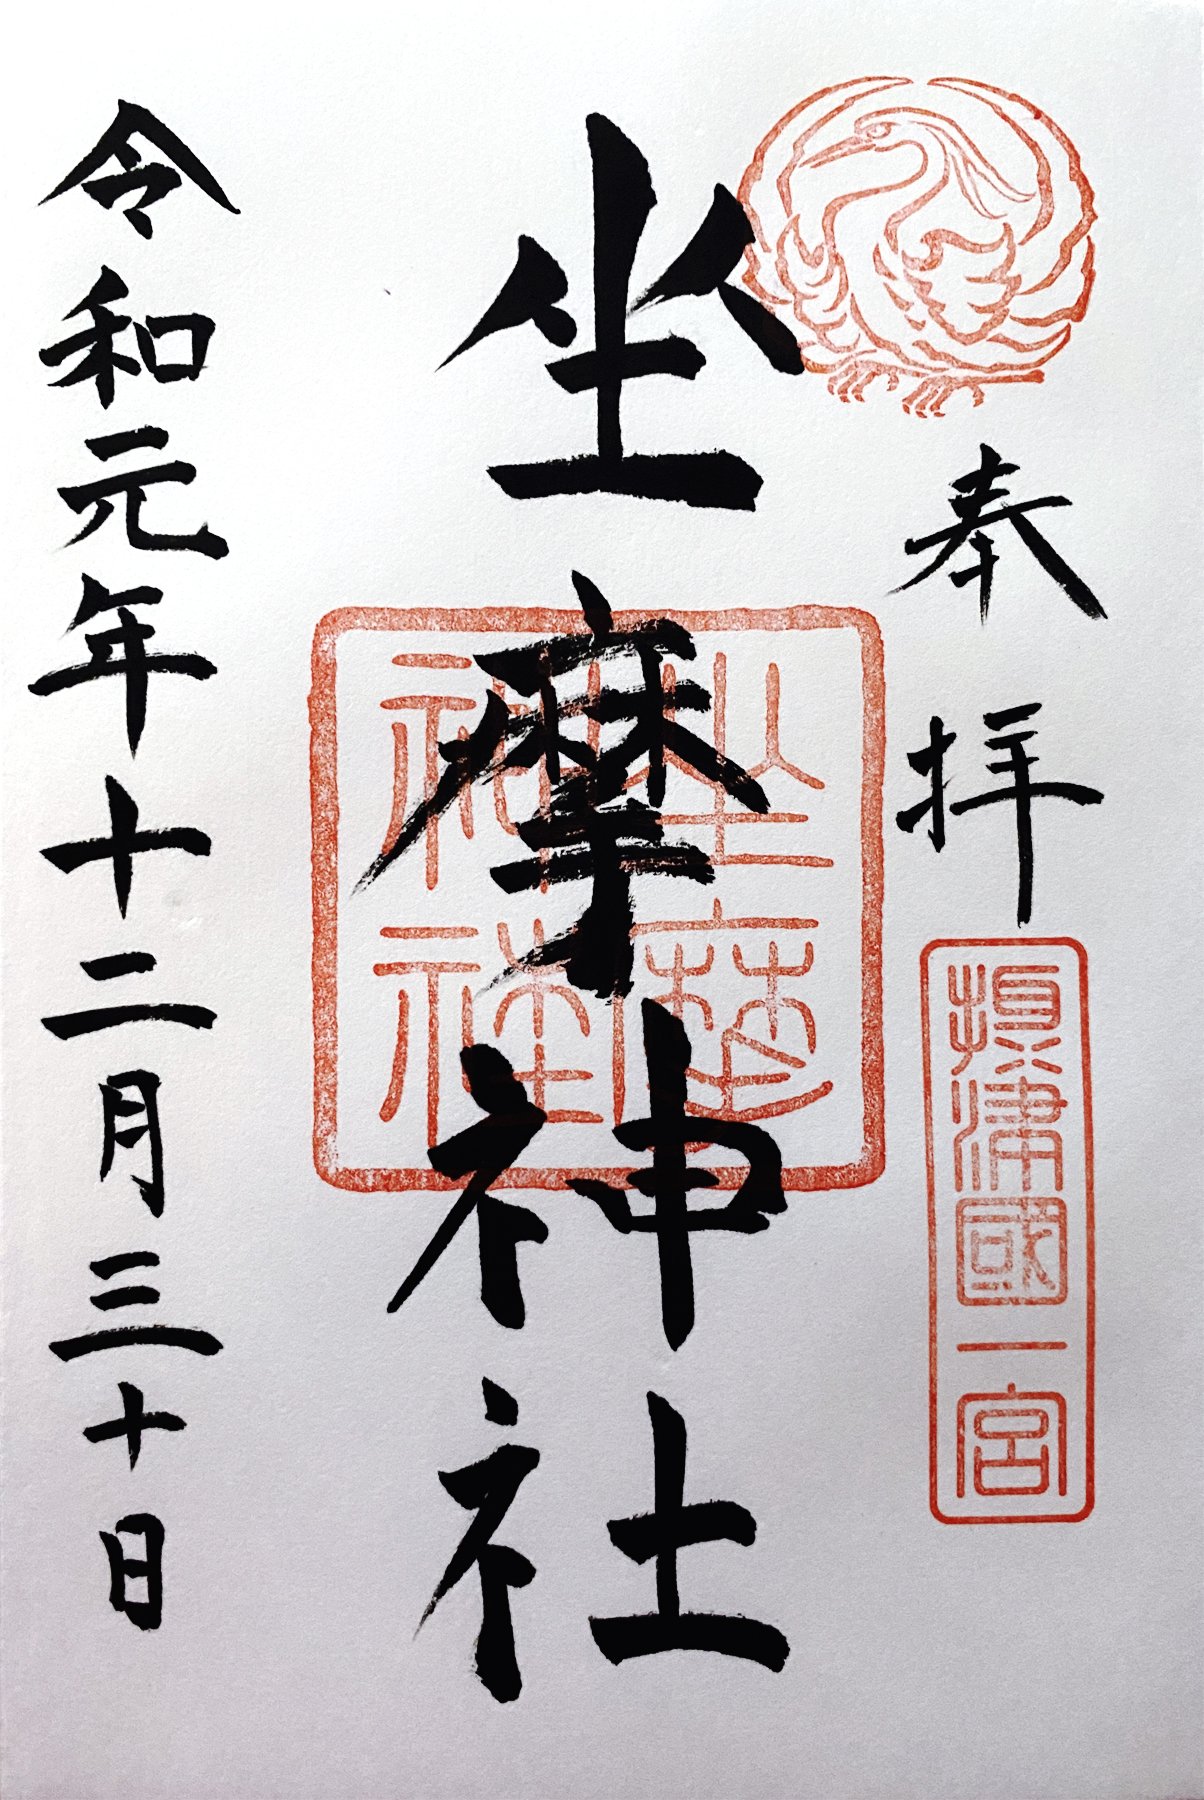 奉拝
摂津國一宮
坐摩神社
坐摩神社
令和元年十二月三十日